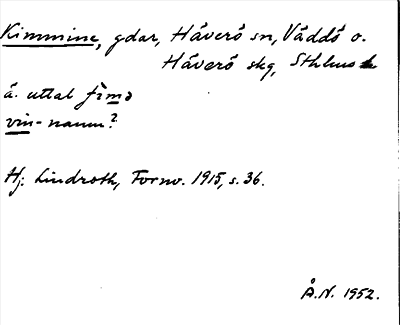 Kimmine, gdar, Häverö sn, Väddö o.
Häverö skg, Sthlms
ä. uttal
vin-namn?
Hj. Lindroth, Fornv. 1915, s. 36.
Å.N. 1952.